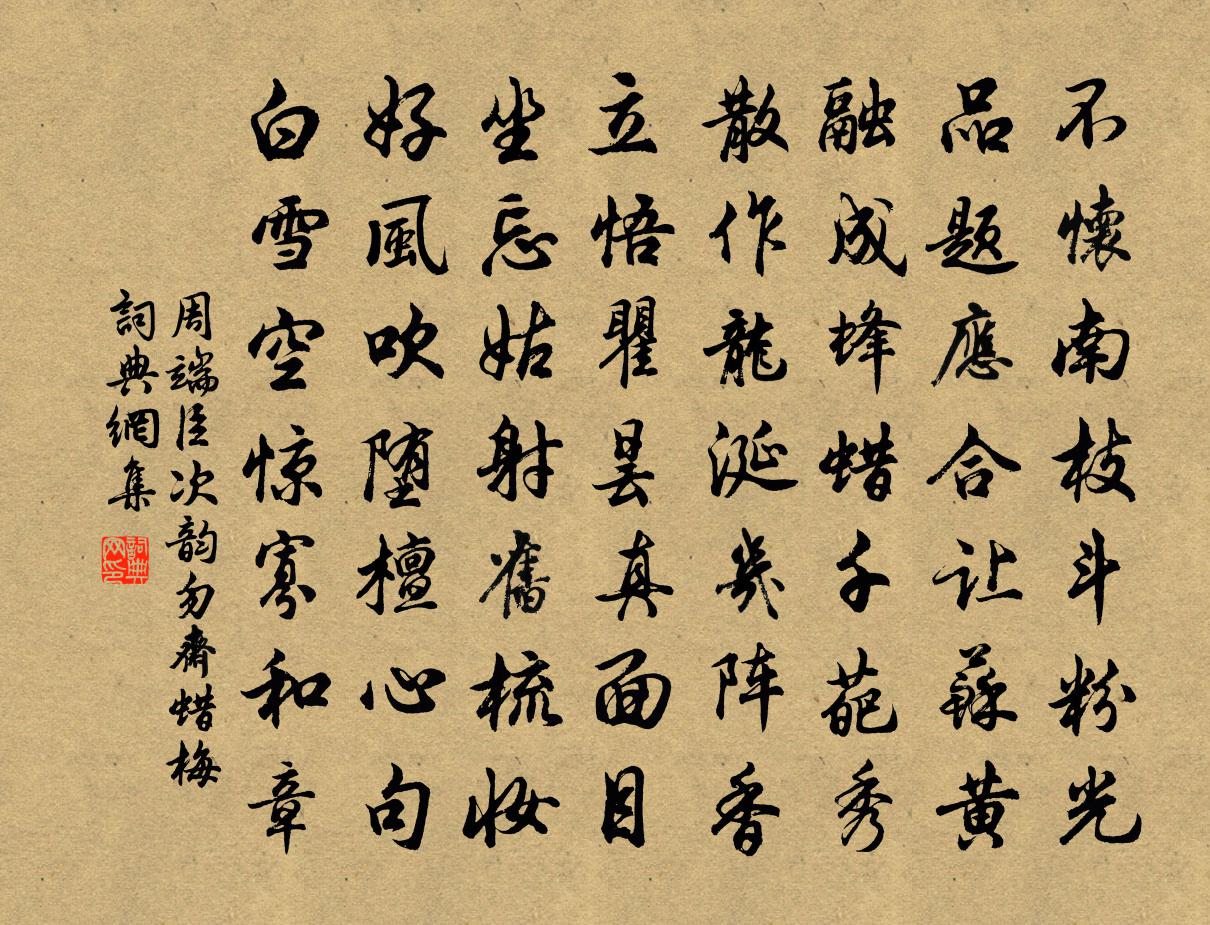 不懷南枝斗粉光
品题應合让蘇黄
融成蜂蜡千葩秀
散作龍涎幾阵香
立悟瞿昙真面目
坐忘姑射舊梳妆
好風吹堕檀心句
白雪空惊寡和章
周端臣次韵勿齋蜡梅
詞典網集
詞典
网印